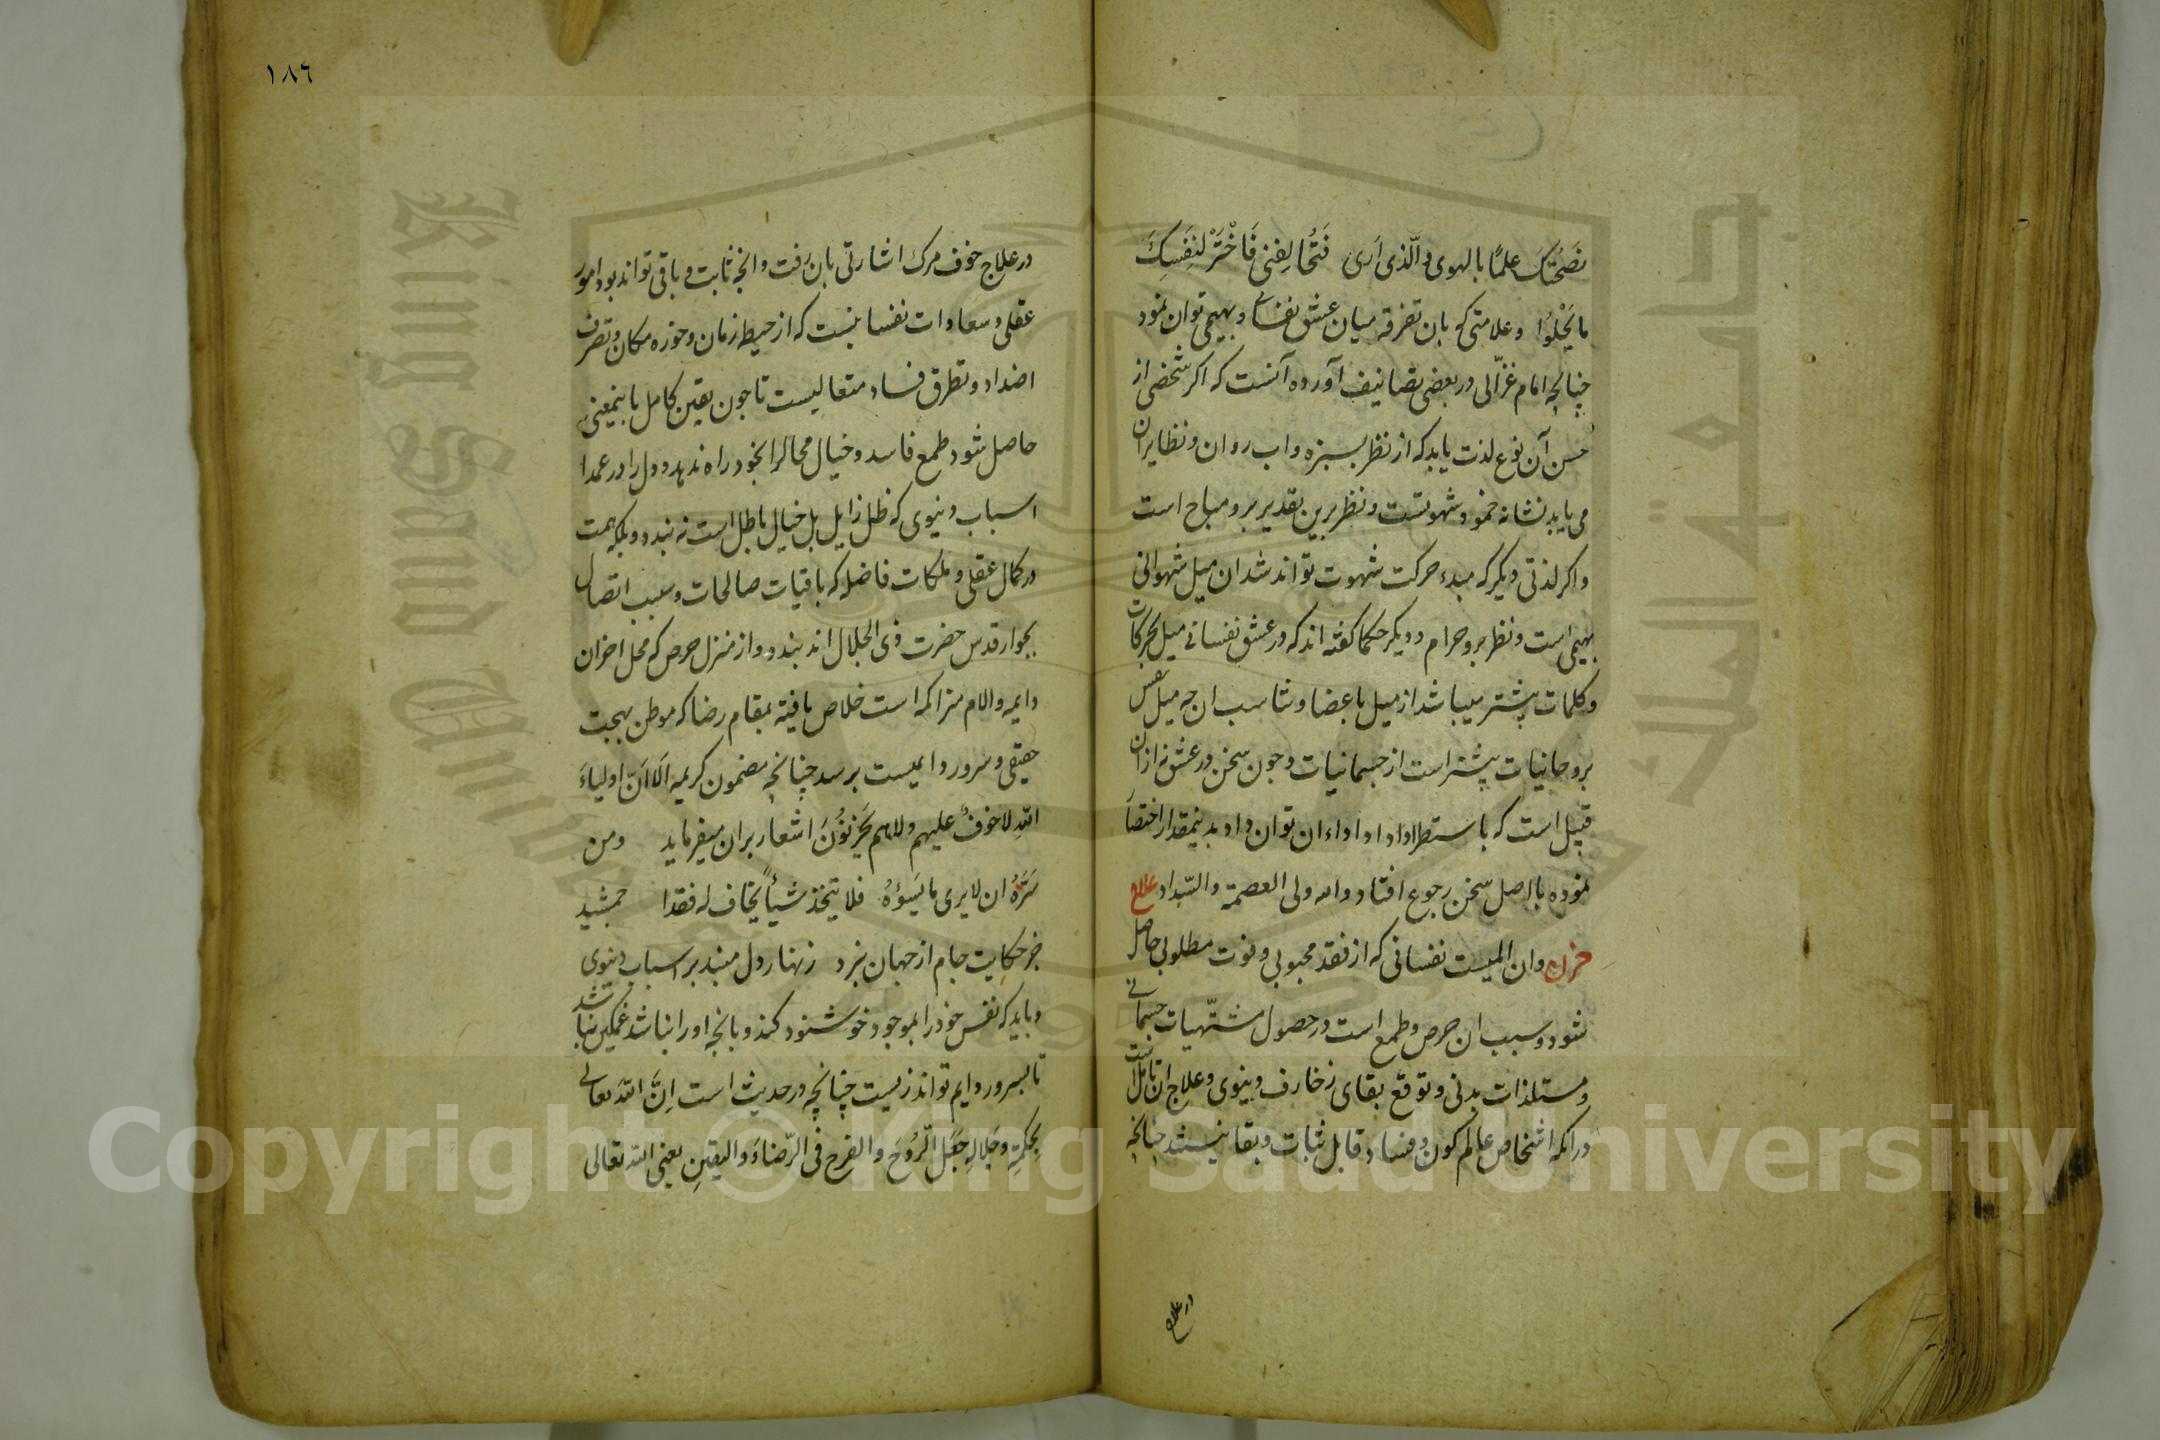 نَصَحْتُكَ علمًا بالهوى والَّذى اَرى فَتُخالِفنى فَاخْتَرْ لِنَفسِكَ
ما يَحْلُوا وعلامتى كه بان تفرقه ميان عشق نفسانى وبهيمى توان نمود
چنانچه امام غزّالى در بعضى تصانيف آورده آنست كه اكر شخصى از
حسن آن نوع لذت يابد كه از نظر بسبزه واب روان ونظاير ان
مى يابد نشانه خمود شهوتست ونظر برين تقدير برو مباح است
واكر لذتى ديكر كه مبدء حركت شهوت تواند شد ان ميل شهوانى
بهيمى است ونظر برو حرام وديكر حكما كفته اند كه در عشق نفسانى ميل بحركات
وكلمات بيشتر ميباشد از ميل باعضا وتناسب ان چه ميل نفس
بروحانيات بيشتر است از جسمانيات وچون سخن در عشق نه ازان
قبيل است كه باستطراد اداء ان توان داد بدينمقدار اختصار
نموده باصل سخن رجوع افتاد والله ولى العصمة والسّداد علاج
حزن وان المیست نفسانى كه از فقد محبوبى وفوت مطلوبى حاصل
شود وسبب ان حرص وطمع است در حصول مشتهيات جسمانى
ومستلذات بدنى وتوقع بقاى زخارف دنيوى وعلاج ان تامل است
در انكه اشخاص عالم كون وفساد قابل ثبات وبقا نيستند چنانچه
در علاج
١٨٦
در علاج خوف مرك اشارتى بان رفت وانچه ثابت وباقى تواند بود امور
عقلى وسعادات نفسانيست كه از حيطه زمان وحوزه مكان وتصرف
اضداد وتطرق فساد متعاليست تا چون يقين كامل باينمعنى
حاصل شود طمع فاسد وخيال محال را بخود راه ندهد ودل را در عمدا
اسباب دنيوى كه ظل زايل بل خيال باطل است نه بندد وبلكه همت
در كمال عقلى وملكات فاضله كه باقيات صالحات وسبب اتصال
بجوار قدس حضرت ذى الجلال اند بندد واز منزل حرص كه محل احزان
دايمه والام متراكمه است خلاص يافته بمقام رضا كه موطن بهجت
حقيقى وسرور دايميست برسد چنانچه مضمون كريمه اَلا اَنّ اولياءَ
اللّهِ لا خوفٌ عليهم ولا هم يَحزنوُنَ اشعار بران ميفرمايد ومن
سَرَّهُ ان لا يرى ما يَسَوُءُهُ فلا يتخذ شيأً يخاف له فقدا جمشيد
جز حكايت جام از جهان نبرد زنهار دل مبند بر اسباب دنيوى
وبايد كه نفس خود را بموجود خوشنود كند وبانچه اورا نباشد غمكين نباشد
تا بسرور دايم تواند زيست چنانچه در حديث است اِنَّ اللّهَ تعالى
بحكمَتِهِ وجَلالِهِ جَعَلَ الرَّوُحَ والفرح فى الرّضاءَ واليقينِ يعنى اللّه تعالى
Copyright © King Saud University